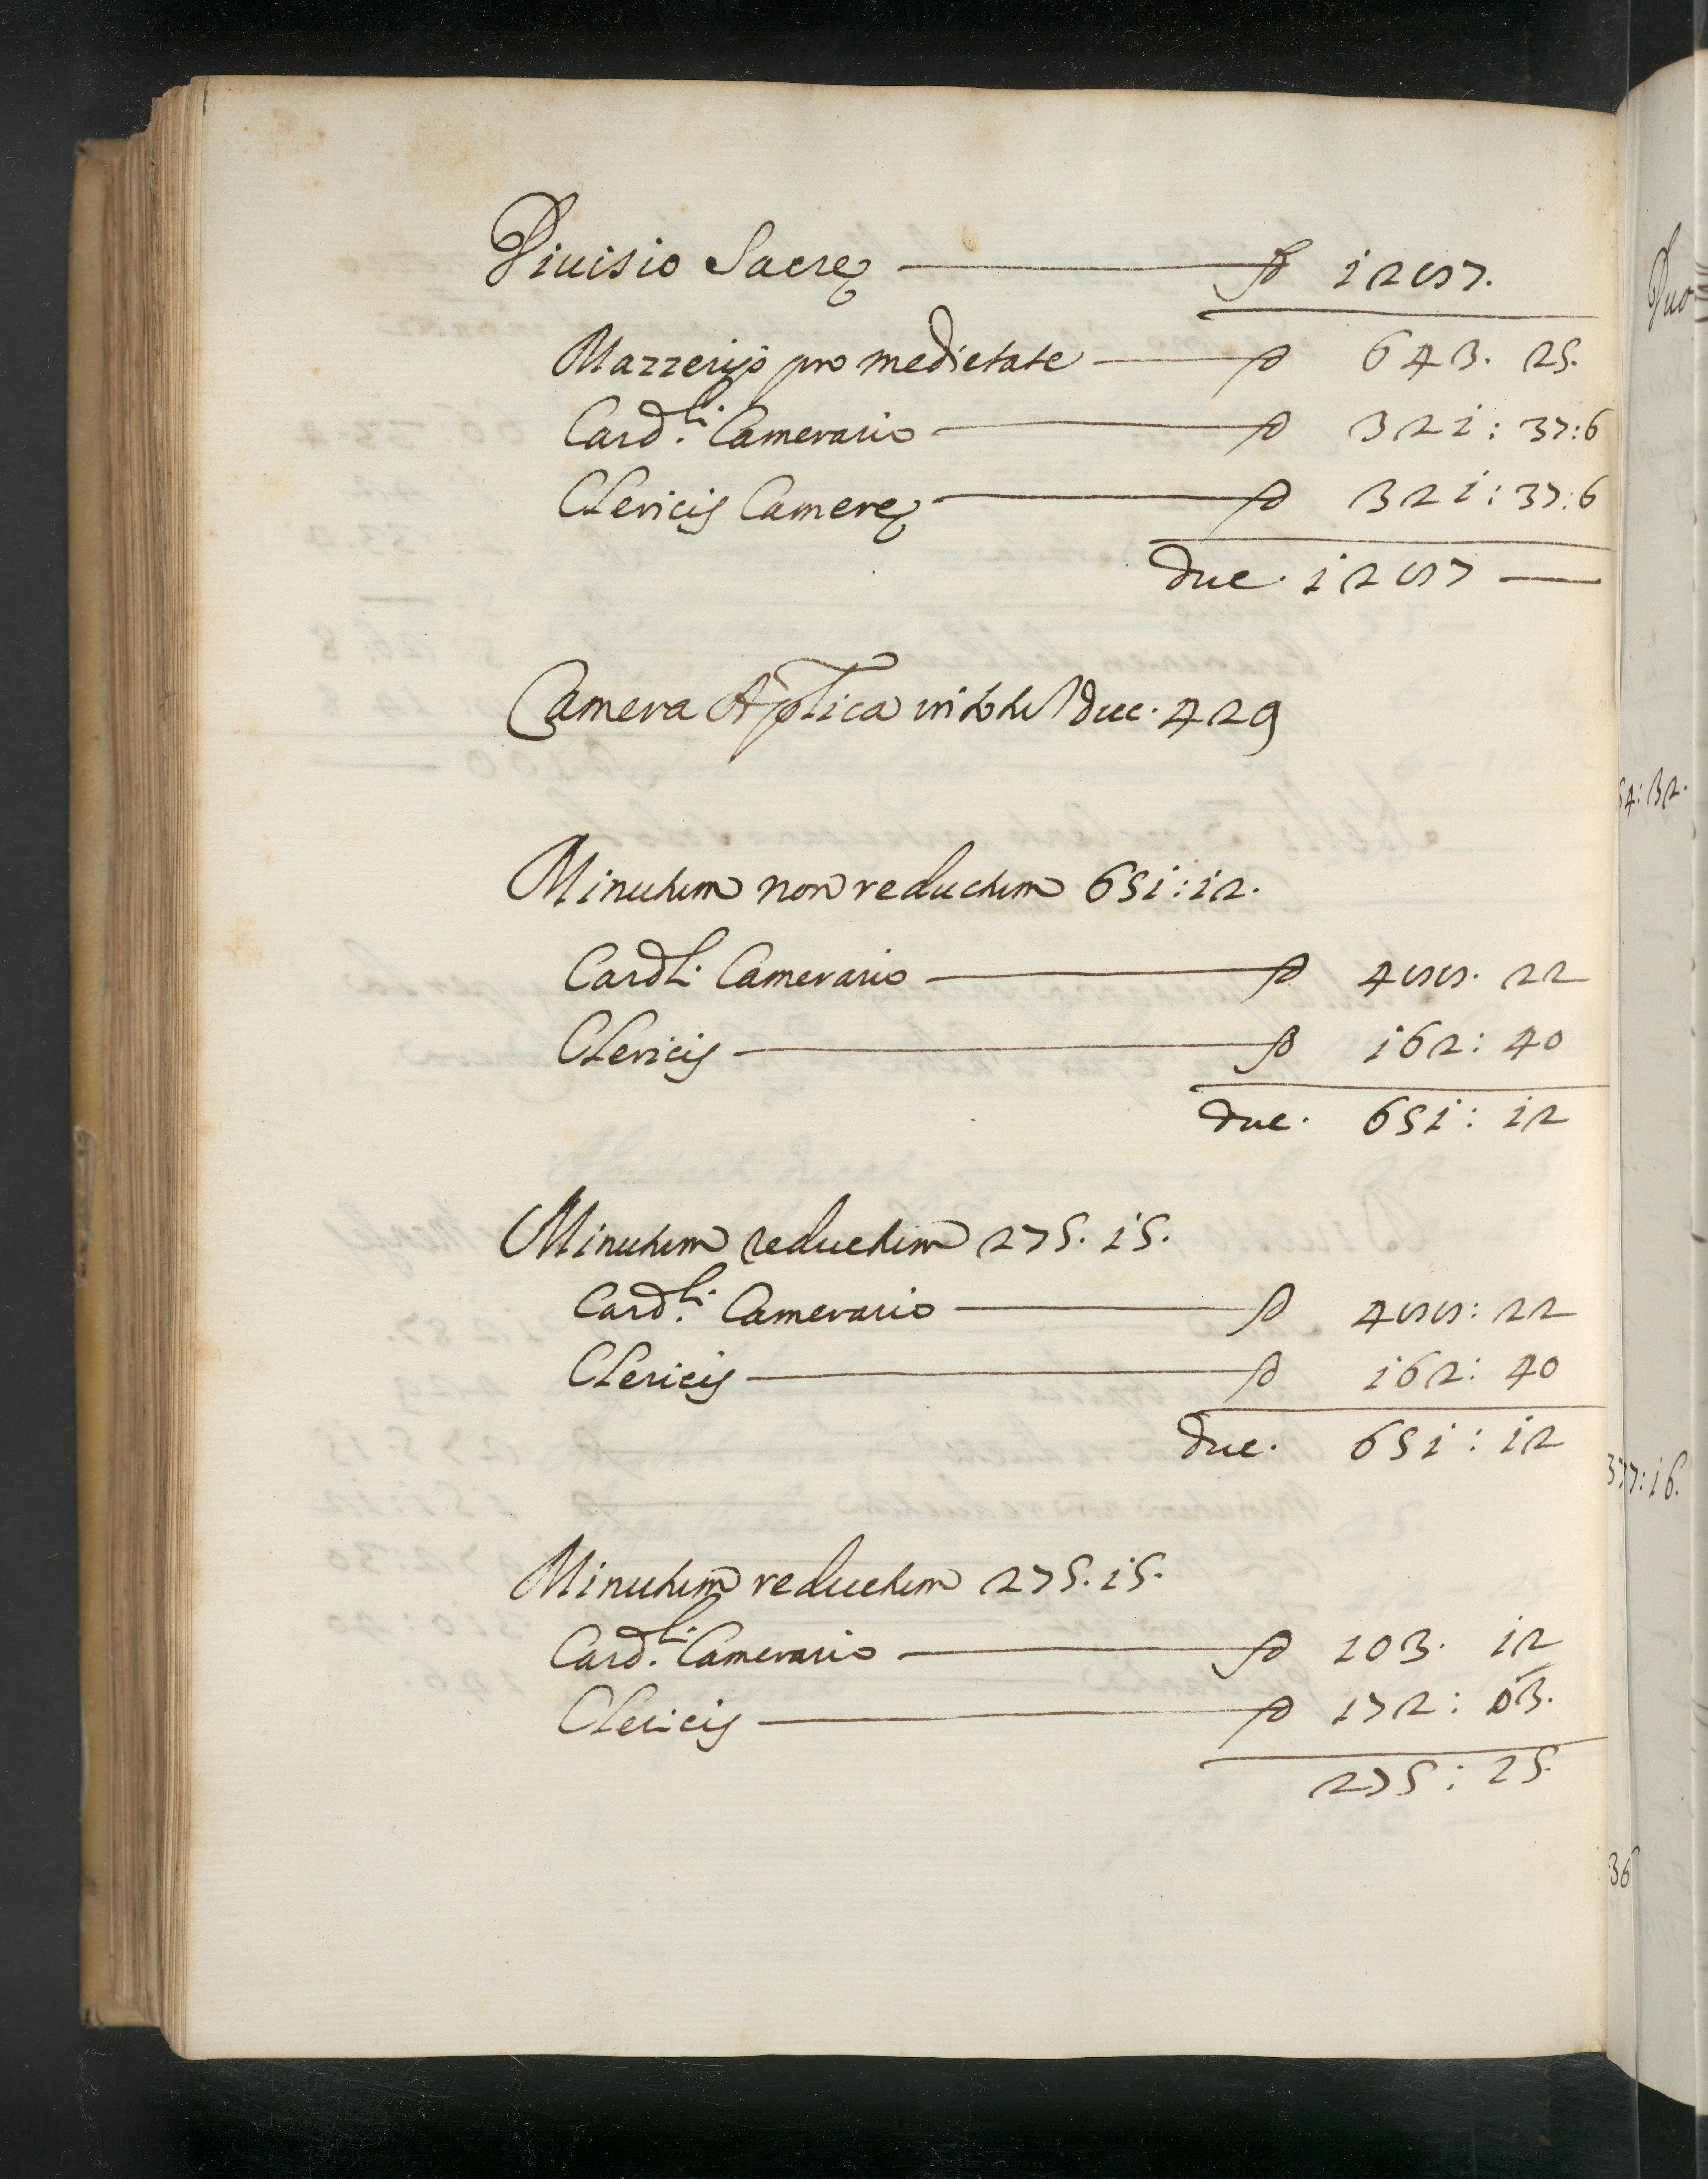 Diuisio Sacræ —— D 1287.
Mazzerijs pro medietate —— D 643. 25.
Card.li Camerario —— D 321: 37:6
Clericis Cameræ —— D 321: 37:6
duc. 1287 ——
Camera Aplica in totu duc. 429
Minutum non reductum 651:12.
Cardli. Camerario —— D 488. 22
Clericis —— D 162: 40
duc. 651: 12
Minutum reductum 275. 15.
Card.li Camerario —— D 488: 22
Clericis —— D 162: 40
duc. 651: 12
Minutum reductum 275. 15.
Card.li Camerario —— D 103. 12
Clericis —— D 172: 03.
275: 15.
54:32.
377:16.
36